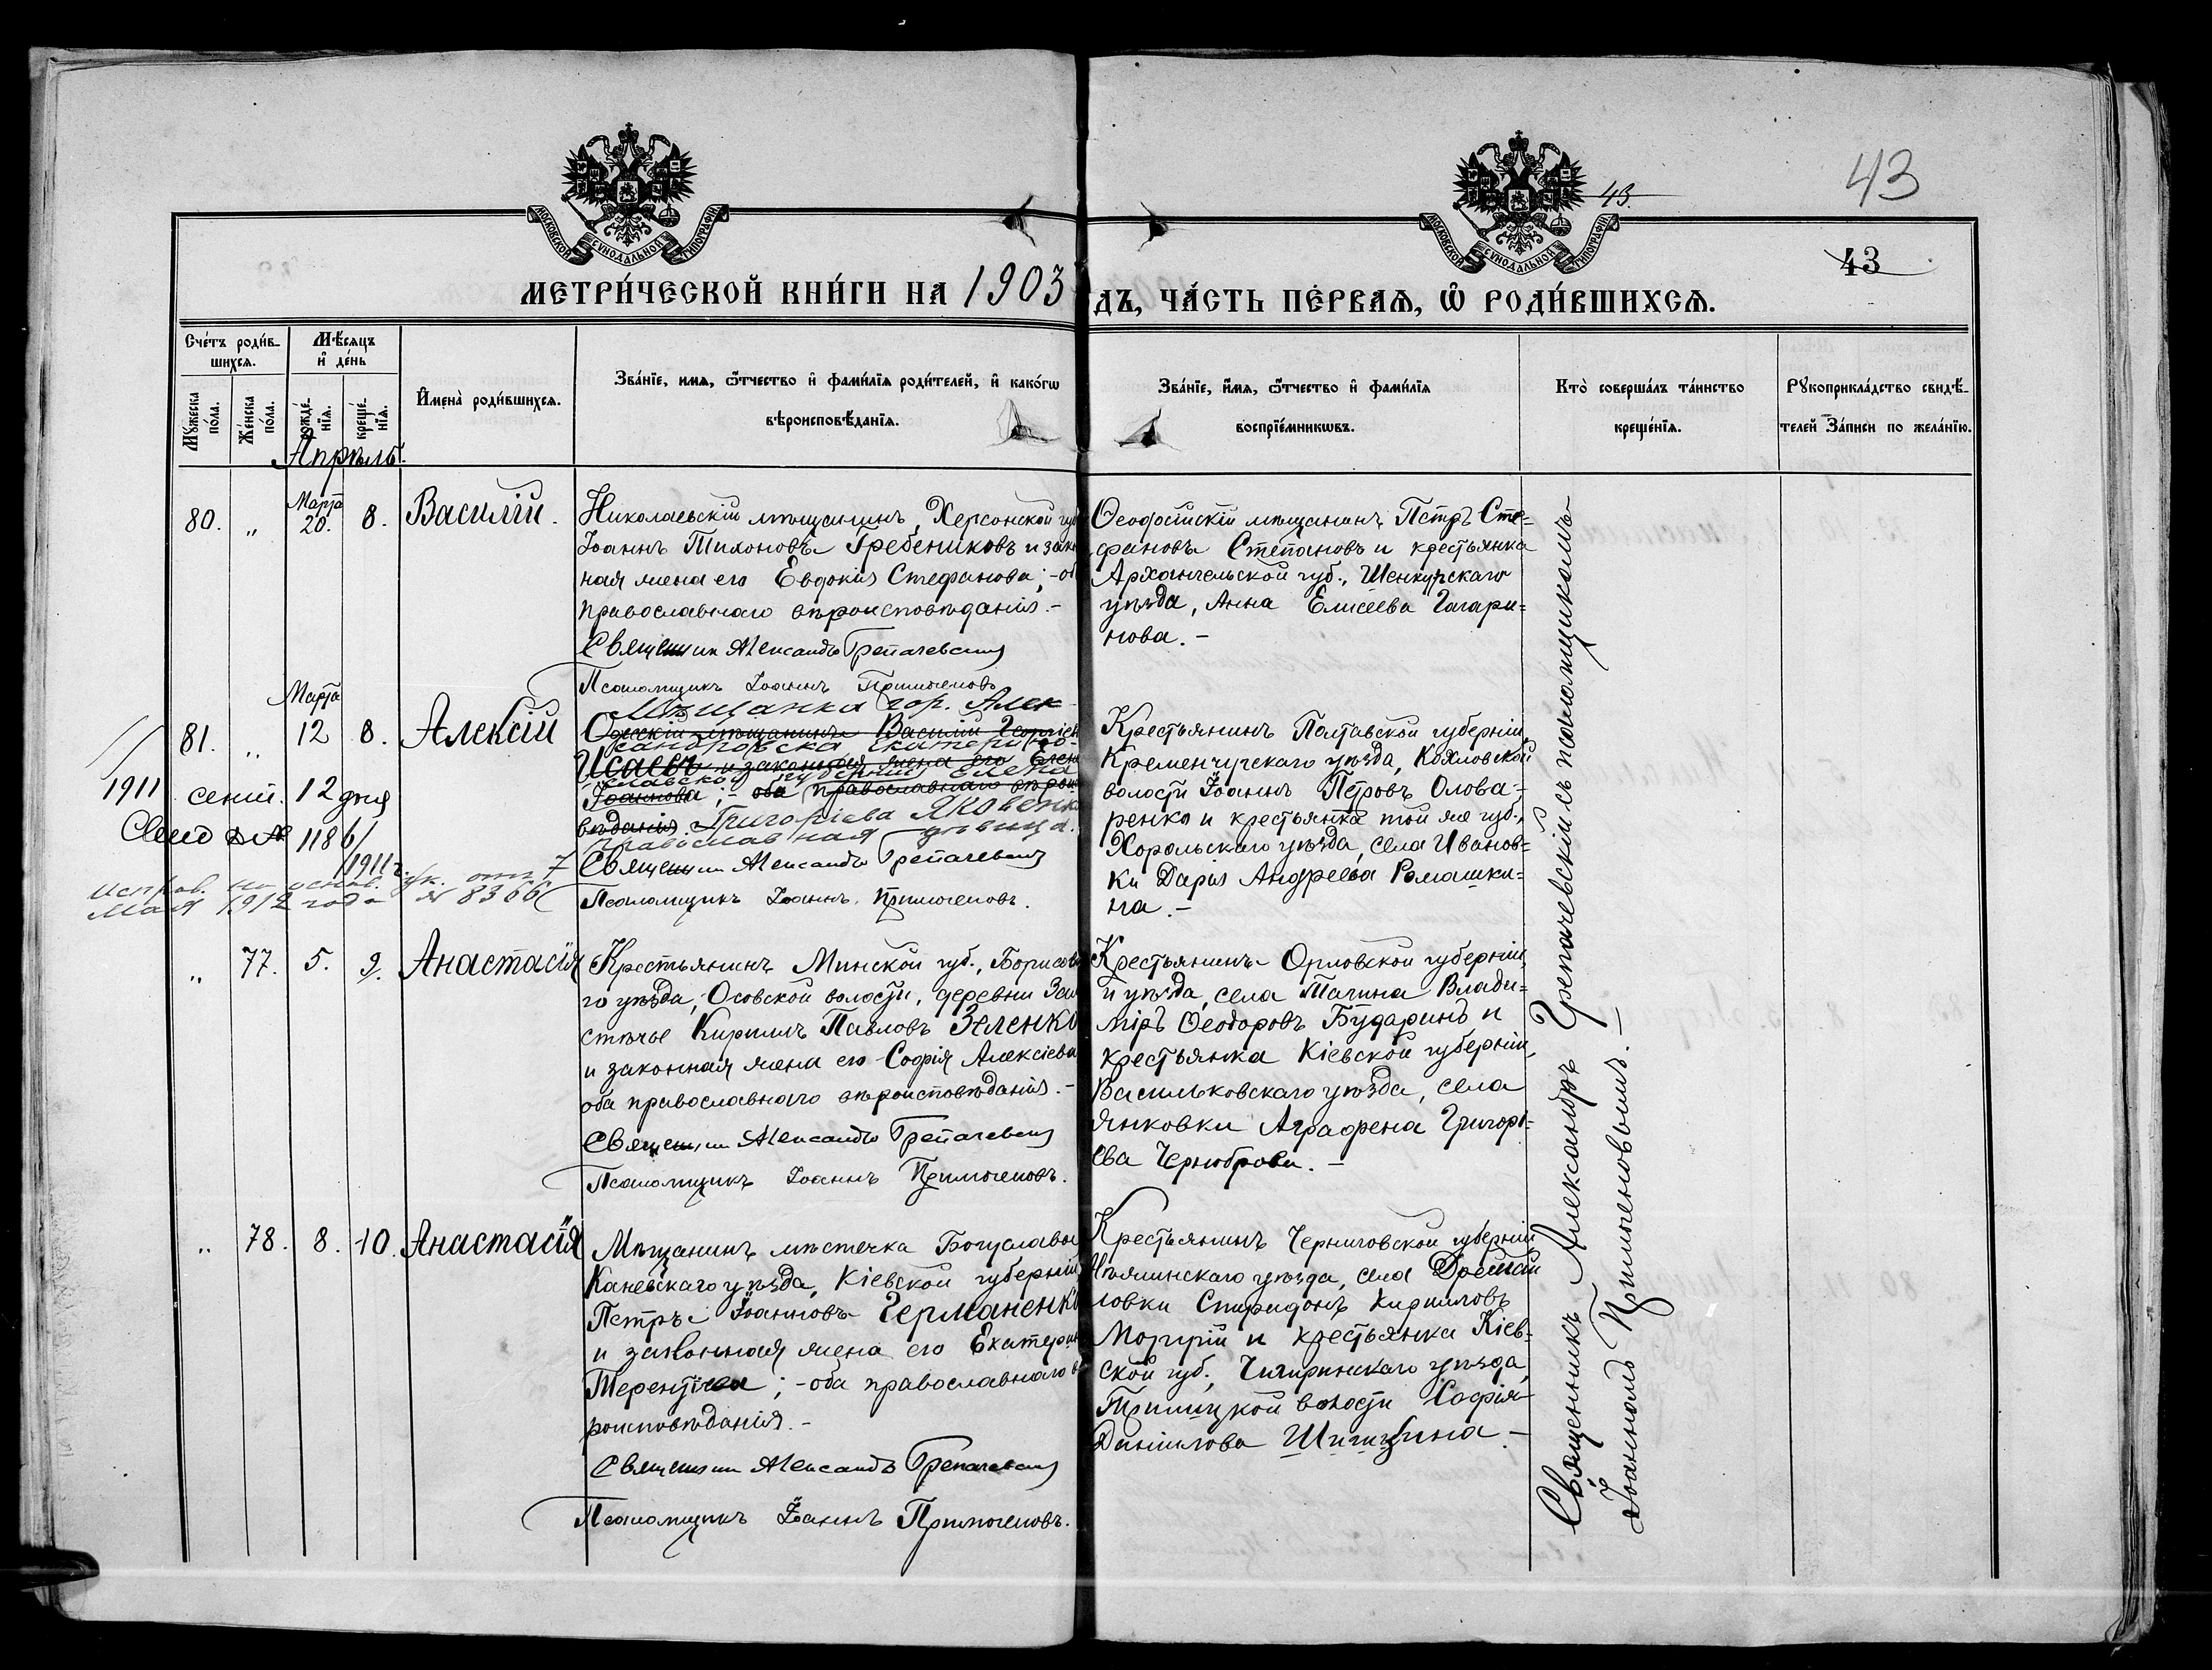 43
43.
43
МОСКОВСКОЙ СѴНОДАЛЬНОЙ ТИПОГРАФІИ
МОСКОВСКОЙ СѴНОДАЛЬНОЙ ТИПОГРАФІИ
МЕТРИ́ЧЕСКОЙ КНИ́ГИ НА 1903
ДЪ, ЧА́СТЬ ПЕ́РВАѦ, Ѽ РОДИ́ВШИХСѦ.
Сче́тъ роди́в-
шихсѧ.
Мѣ́сѧцъ
и҆ де́нь
Мꙋ́жеска по́ла.
Же́нска по́ла.
рожде́-
нїѧ.
креще́-
нїѧ.
И҆мена̀ роди́вшихсѧ.
Зва́нїе, имѧ, ѻ҆́тчество и҆ фами́лїѧ роди́телей, и҆ како́гѡ
вѣроисповѣ́данїѧ.
Зва́нїе, и҆́мѧ, ѻ҆́тчество и҆ фами́лїѧ
воспрїе́мникѡвъ.
Кто̀ соверша́лъ та́инство
креще́нїѧ.
Рꙋкоприкла́дство свидѣ́-
телей За́писи по жела́нїю.
Апрѣль.
80. „ Марта 20. 8. Василій.
Николаевскій мѣщанинъ, Херсонской губ
Іоаннъ Тихоновъ Гребениковъ и зако
ная жена его Евдокія Стефанова; - об
православнаго вѣроисповѣданія. -
Священник Александъ Грепачевский
Псаломщикъ Іоаннъ Примогеновъ
Ѳеодосійскій мѣщанинъ Петръ Сте=
фановъ Степановъ и крестьянка
Архангельской губ., Шенкурскаго
уѣзда, Анна Елисеева Гагари=
нова. -
81. „ Марта 12 8. Алексій
Мѣщанка гор. Алек
Одесскій мѣщанинъ Василій Георгіев
сандровска Екатерино-
Исаевъ и законная жена его Елен
славской губерніи Елена
Іоаннова; - оба православнаго вѣрои
Григорьева Яковенко
вѣданія.
православная дѣвица.
Священник Александъ Грепачевский
Псаломщикъ Іоаннъ Примогеновъ.
1911 сент. 12 дня
1186/
1911 г.
Исправ. на основ. ук. отъ 7
Мая 1912 года № 8366
Крестьянинъ Полтавской губерніи,
Кременчугскаго уѣзда, Кохловской
волости Іоаннъ Петровъ Олова-
ренко и крестьянка той же губ.,
Хорольскаго уѣзда, села Иванов=
ки Дарія Андреева Ромашки=
на. -
„ 77. 5. 9. Анастасія
Крестьянинъ Минской губ., Борисов
го уѣзда, Осовской волости, деревни За
стѣчье Кириллъ Павловъ Зеленко
и законная жена его София Алексіева
оба православнаго вѣроисповѣданія. -
Священник Александъ Грепачевский
Псаломщикъ Іоаннъ Примогеновъ.
Крестьянинъ Орловской губерніи,
и уѣзда, села Тагина Влади=
міръ Ѳеодоровъ Бударинъ и
крестьянка Кіевской губерніи,
Васильковскаго уѣзда, села
Янковки Аграфена Григорь-
ева Черноброва. -
„ 78. 8. 10. Анастасія
Мѣщанинъ мѣстечка Богуслава
Каневскаго уѣзда, Кіевской губерніи
Петръ Іоанновъ Германенко
и законная жена его Екатерин
Терентіева; - оба православнаго в
роисповѣданія. -
Священник Александъ Грепачевский
Псаломщикъ Іоаннъ Примогеновъ.
Крестьянинъ Черниговской губерніи
Нѣжинскаго уѣзда, села Дремай
ловки Спиридонъ Кирилловъ
Моргій и крестьянка Кіев-
ской губ., Чигиринскаго уѣзда,
волости Софія
Даніилова Шишкина. -
Священникъ Александръ Грепачевскій съ псаломщикомъ
Іоанномъ Примогеновымъ. -